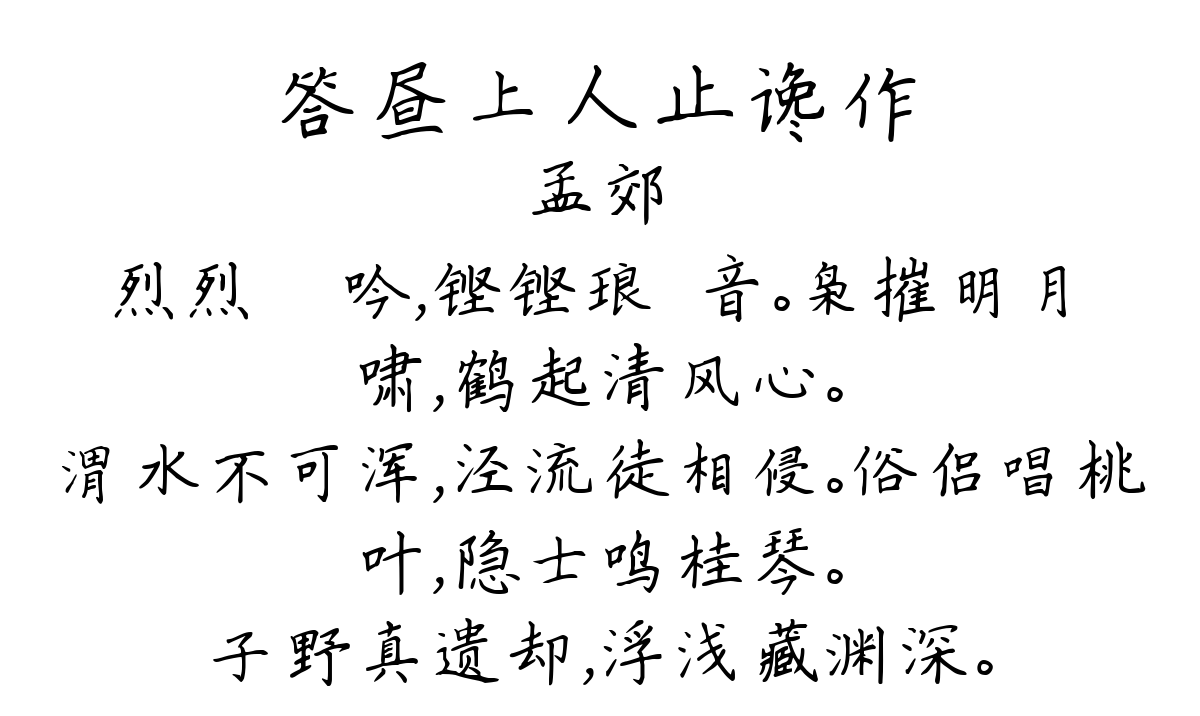 答昼上人止谗作
孟郊
烈烈 吟,铿铿琅 音。枭摧明月
啸,鹤起清风心。
渭水不可浑,泾流徒相侵。俗侣唱桃
叶,隐士鸣桂琴。
子野真遗却,浮浅藏渊深。